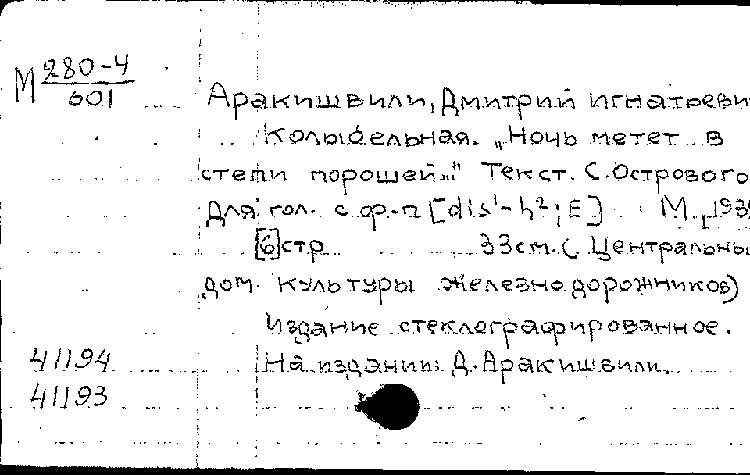 М 280-4
601
Аракишвили, Дмитрий Игнатьеви
Колыбельная. „Ночь метет в
степи порошей..." Текст. С. Острового
Для гол. с ф.-п [dis¹-h²; E] М., 193
[6] стр 33см. (Центральны
дом. культуры железнодорожников)
Издание стеклографированное.
На издании: Д. Аракишвили.
41194
41193